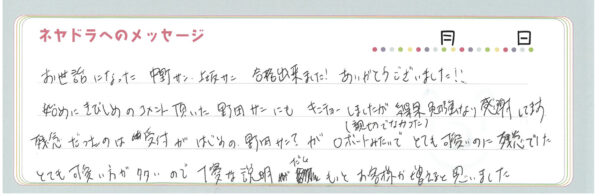 ネヤドラへのメッセージ
月 日
お世話になった 中野サン 上坂サン 合格出来ました! ありがとうございました!!
始めに きびしめのコメント頂いた 野田サンにも キンチョーしましたが 結果 勉強になり 感謝してます
(親切でなかった)
残念だったのは 受付が はじめの 野田サン? が ロボットみたいで とても可愛いのに 残念でした
とても可愛い方が多いので 丁寧な説明 だし もっと お客様が増えると思いました